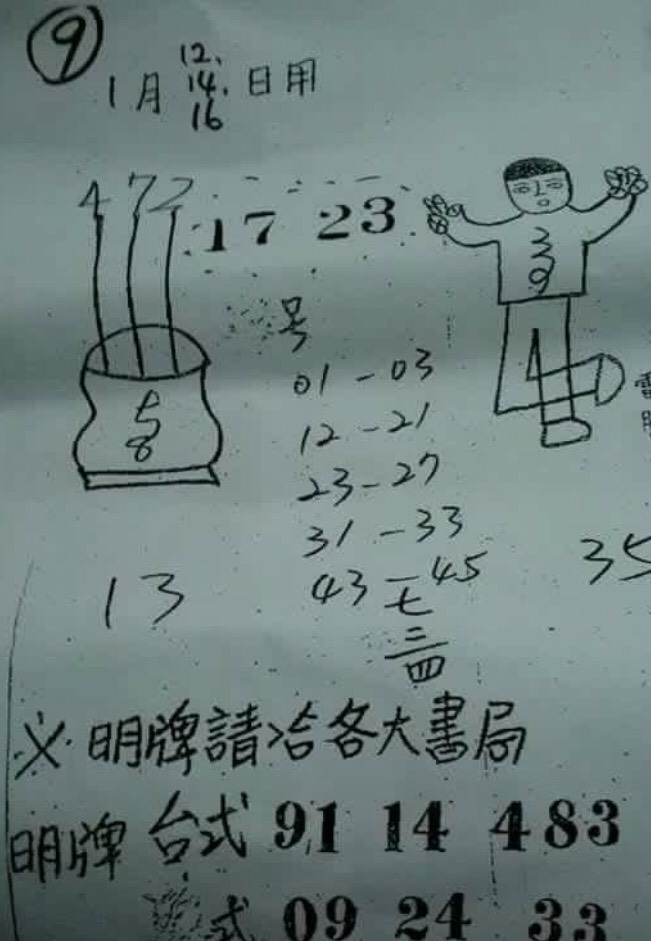 9
1月 12、14、16 日用
4 7 2
17 23
3
3
9
号
01-03
12-21
5
8
23-27
31-33
43-45
13
35
七
三
四
※明牌請洽各大書局
明牌 台式 91 14 483
式 09 24 33